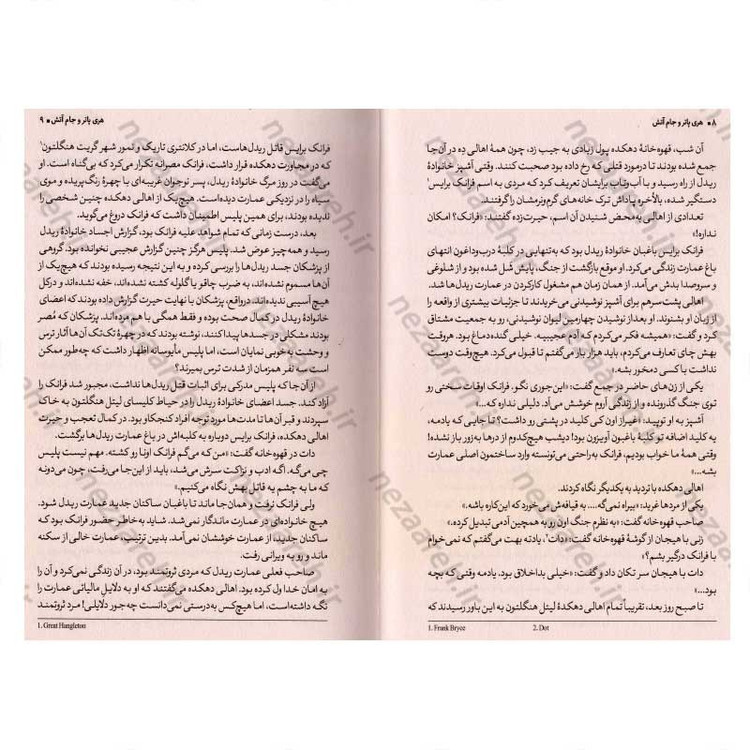 ۸ • هری پاتر و جام آتش
آن شب، قهوه‌خانهٔ دهکده پول زیادی به جیب زد، چون همهٔ اهالی ده در آن‌جا
جمع شده بودند تا درمورد قتلی که رخ داده بود صحبت کنند. وقتی آشپز خانوادهٔ
ریدل از راه رسید و با آب‌وتاب برایشان تعریف کرد که مردی به اسم فرانک برایس¹
دستگیر شده، بالأخره پاداش ترک خانه‌های گرم‌ونرمشان را گرفتند.
تعدادی از اهالی به‌محض شنیدن آن اسم، حیرت‌زده گفتند: «فرانک؟ امکان
نداره!»
فرانک برایس باغبان خانوادهٔ ریدل بود که به‌تنهایی در کلبهٔ درب‌وداغون انتهای
باغ عمارت زندگی می‌کرد. او موقع بازگشت از جنگ، پایش شل شده بود و از شلوغی
و سروصدا بدش می‌آمد. از همان زمان هم مشغول کارکردن در عمارت ریدل‌ها شد.
اهالی پشت‌سرهم برای آشپز نوشیدنی می‌خریدند تا جزئیات بیشتری از واقعه را
از زبان او بشنوند. او بعد از نوشیدن چهارمین لیوان نوشیدنی، رو به جمعیت مشتاق
کرد و گفت: «همیشه فکر می‌کردم که آدم عجیبیه. خیلی گنده‌دماغ بود. هروقت
بهش چای تعارف می‌کردم، باید هزار بار می‌گفتم تا قبول می‌کرد. هیچ‌وقت دوست
نداشت با کسی دمخور بشه.»
یکی از زن‌های حاضر در جمع گفت: «این‌جوری نگو. فرانک اوقات سختی رو
توی جنگ گذرونده و از زندگی آروم خوشش می‌آد. دلیلی نداره که...»
آشپز به او توپید: «غیر از اون کی کلید در پشتی رو داشت؟ تا جایی که یادمه،
یه کلید اضافه تو کلبهٔ باغبون آویزون بود! دیشب هیچ‌کدوم از درها به‌زور باز نشده!
وقتی همهٔ ما خواب بودیم، فرانک به‌راحتی می‌تونسته وارد ساختمون اصلی عمارت
بشه...»
اهالی دهکده با تردید به یکدیگر نگاه کردند.
یکی از مردها غرید: «بیراه نمی‌گه.... به قیافه‌ش می‌خورد که این‌کاره باشه.»
صاحب قهوه‌خانه گفت: «به نظرم جنگ اون رو به همچین آدمی تبدیل کرده.»
زنی با هیجان از گوشهٔ قهوه‌خانه گفت: «دات²، یادته بهت می‌گفتم که نمی‌خوام
با فرانک درگیر بشم؟»
دات با هیجان سر تکان داد و گفت: «خیلی بداخلاق بود. یادمه وقتی که بچه
بود...»
تا صبح روز بعد، تقریباً تمام اهالی دهکدهٔ لیتل هنگلتون به این باور رسیدند که
1. Frank Bryce 2. Dot
هری پاتر و جام آتش • ۹
فرانک برایس قاتل ریدل‌هاست، اما در کلانتری تاریک و نمور شهر گریت هنگلتون¹
که در مجاورت دهکده قرار داشت، فرانک مصرانه تکرار می‌کرد که بی‌گناه است. او
می‌گفت در روز مرگ خانوادهٔ ریدل، پسر نوجوان غریبه‌ای با چهرهٔ رنگ‌پریده و موی
سیاه را در نزدیکی عمارت دیده‌است. هیچ‌یک از اهالی دهکده چنین شخصی را
ندیده بودند، برای همین پلیس اطمینان داشت که فرانک دروغ می‌گوید.
بعد، درست زمانی که تمام شواهد علیه فرانک بود، گزارش اجساد خانوادهٔ ریدل
رسید و همه‌چیز عوض شد. پلیس هرگز چنین گزارش عجیبی نخوانده بود. گروهی
از پزشکان جسد ریدل‌ها را بررسی کرده و به این نتیجه رسیده بودند که هیچ‌یک از
آن‌ها مسموم نشده‌اند، به ضرب چاقو یا گلوله کشته نشده‌اند، خفه نشده‌اند و درکل
هیچ آسیبی ندیده‌اند. درواقع، پزشکان با نهایت حیرت گزارش داده بودند که اعضای
خانوادهٔ ریدل در کمال صحت بوده و فقط همگی با هم مرده‌اند. پزشکان که مُصر
بودند مشکلی در جسدها پیدا کنند، نوشته بودند که در چهرهٔ تک‌تک آن‌ها آثار ترس
و وحشت به‌خوبی نمایان است، اما پلیس مأیوسانه اظهار داشت که چه‌طور ممکن
است سه نفر همزمان از شدت ترس بمیرند؟
از آن‌جا که پلیس مدرکی برای اثبات قتل ریدل‌ها نداشت، مجبور شد فرانک را
آزاد کند. جسد اعضای خانوادهٔ ریدل را در حیاط کلیسای لیتل هنگلتون به خاک
سپردند و قبر آن‌ها تا مدت‌ها مورد توجه افراد کنجکاو بود. در کمال تعجب و حیرت
اهالی دهکده، فرانک برایس دوباره به کلبه‌اش در باغ عمارت ریدل‌ها برگشت.
دات در قهوه‌خانه گفت: «من که می‌گم فرانک اونا رو کشته. مهم نیست پلیس
چی می‌گه. اگه ادب و نزاکت سرش می‌شد، باید از این‌جا می‌رفت، چون می‌دونه
که ما به چشم یه قاتل بهش نگاه می‌کنیم.»
ولی فرانک نرفت و همان‌جا ماند تا باغبان ساکنان جدید عمارت ریدل شود.
هیچ خانواده‌ای در عمارت ماندگار نمی‌شد. شاید به‌خاطر حضور فرانک بود که
ساکنان جدید، از عمارت خوششان نمی‌آمد. بدین ترتیب، عمارت خالی از سکنه
ماند و رو به ویرانی رفت.
صاحب فعلی عمارت ریدل که مردی ثروتمند بود، در آن زندگی نمی‌کرد و آن را
به امان خدا ول کرده بود. اهالی دهکده می‌گفتند که او به دلایل مالیاتی عمارت را
نگه داشته‌است، اما هیچ‌کس به‌درستی نمی‌دانست چه‌جور دلایلی! مرد ثروتمند
1. Great Hangleton
nezaareh.ir